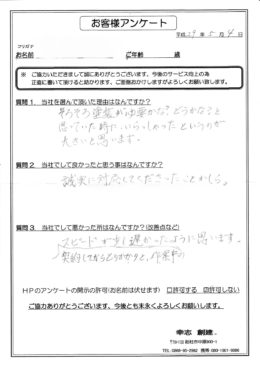 お客様アンケート
平成29年5月4日
フリガナ
お名前 ご年齢 歳
※ ご協力いただきまして誠にありがとうございます。今後のサービス向上の為
正直に書いて頂けると助かります、ご意見おかけしますがよろしくお願い致します。
質問1、当社を選んで頂いた理由はなんですか?
そろそろ塗装が必要かな?どうかな?と
思っていた時にいらっしゃったというのが
大きいと思います。
質問2 当社でして良かったと思う事はなんですか?
誠実に対応してくださったことかしら。
質問3 当社でして悪かった所はなんですか?(改善点など)
スピードが少し遅かったように思います。
契約してからとりかかりと、作業中の
HPのアンケートの開示の許可(お名前は伏せます) 口許可する 許可しない
ご協力ありがとうございます、今後とも末永くよろしくお願いします。
幸志 創建.